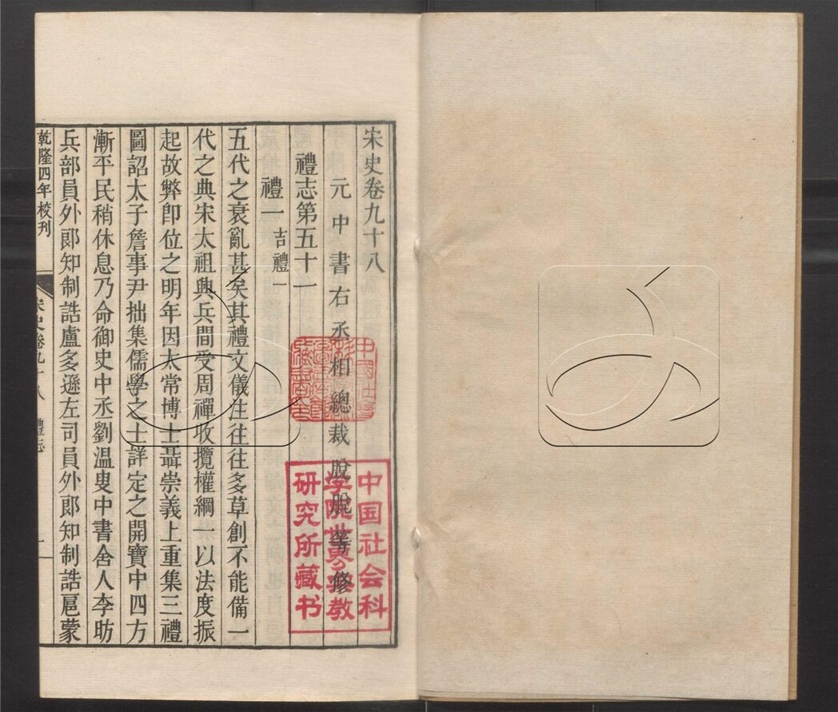 宋史卷九十八
元中書右丞相總裁脫脫等修
禮志第五十一
禮一 吉禮一
五代之衰亂甚矣其禮文儀注往往多草創不能備一
代之典宋太祖興兵間受周禪收攬權綱一以法度振
起故弊卽位之明年因太常博士聶崇義上重集三禮
圖詔太子詹事尹拙集儒學之士詳定之開寶中四方
漸平民稍休息乃命御史中丞劉溫叟中書舍人李昉
兵部員外郞知制誥盧多遜左司員外郞知制誥扈蒙
乾隆四年校刊
宋史卷九十八 禮志 一
中国社会科
学院世界宗教
研究所藏书